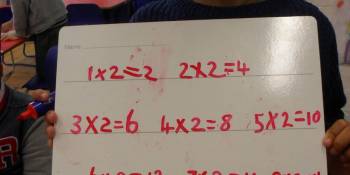 Name
1x2=2 2x2=4
3x2=6 4x2=8 5x2=10